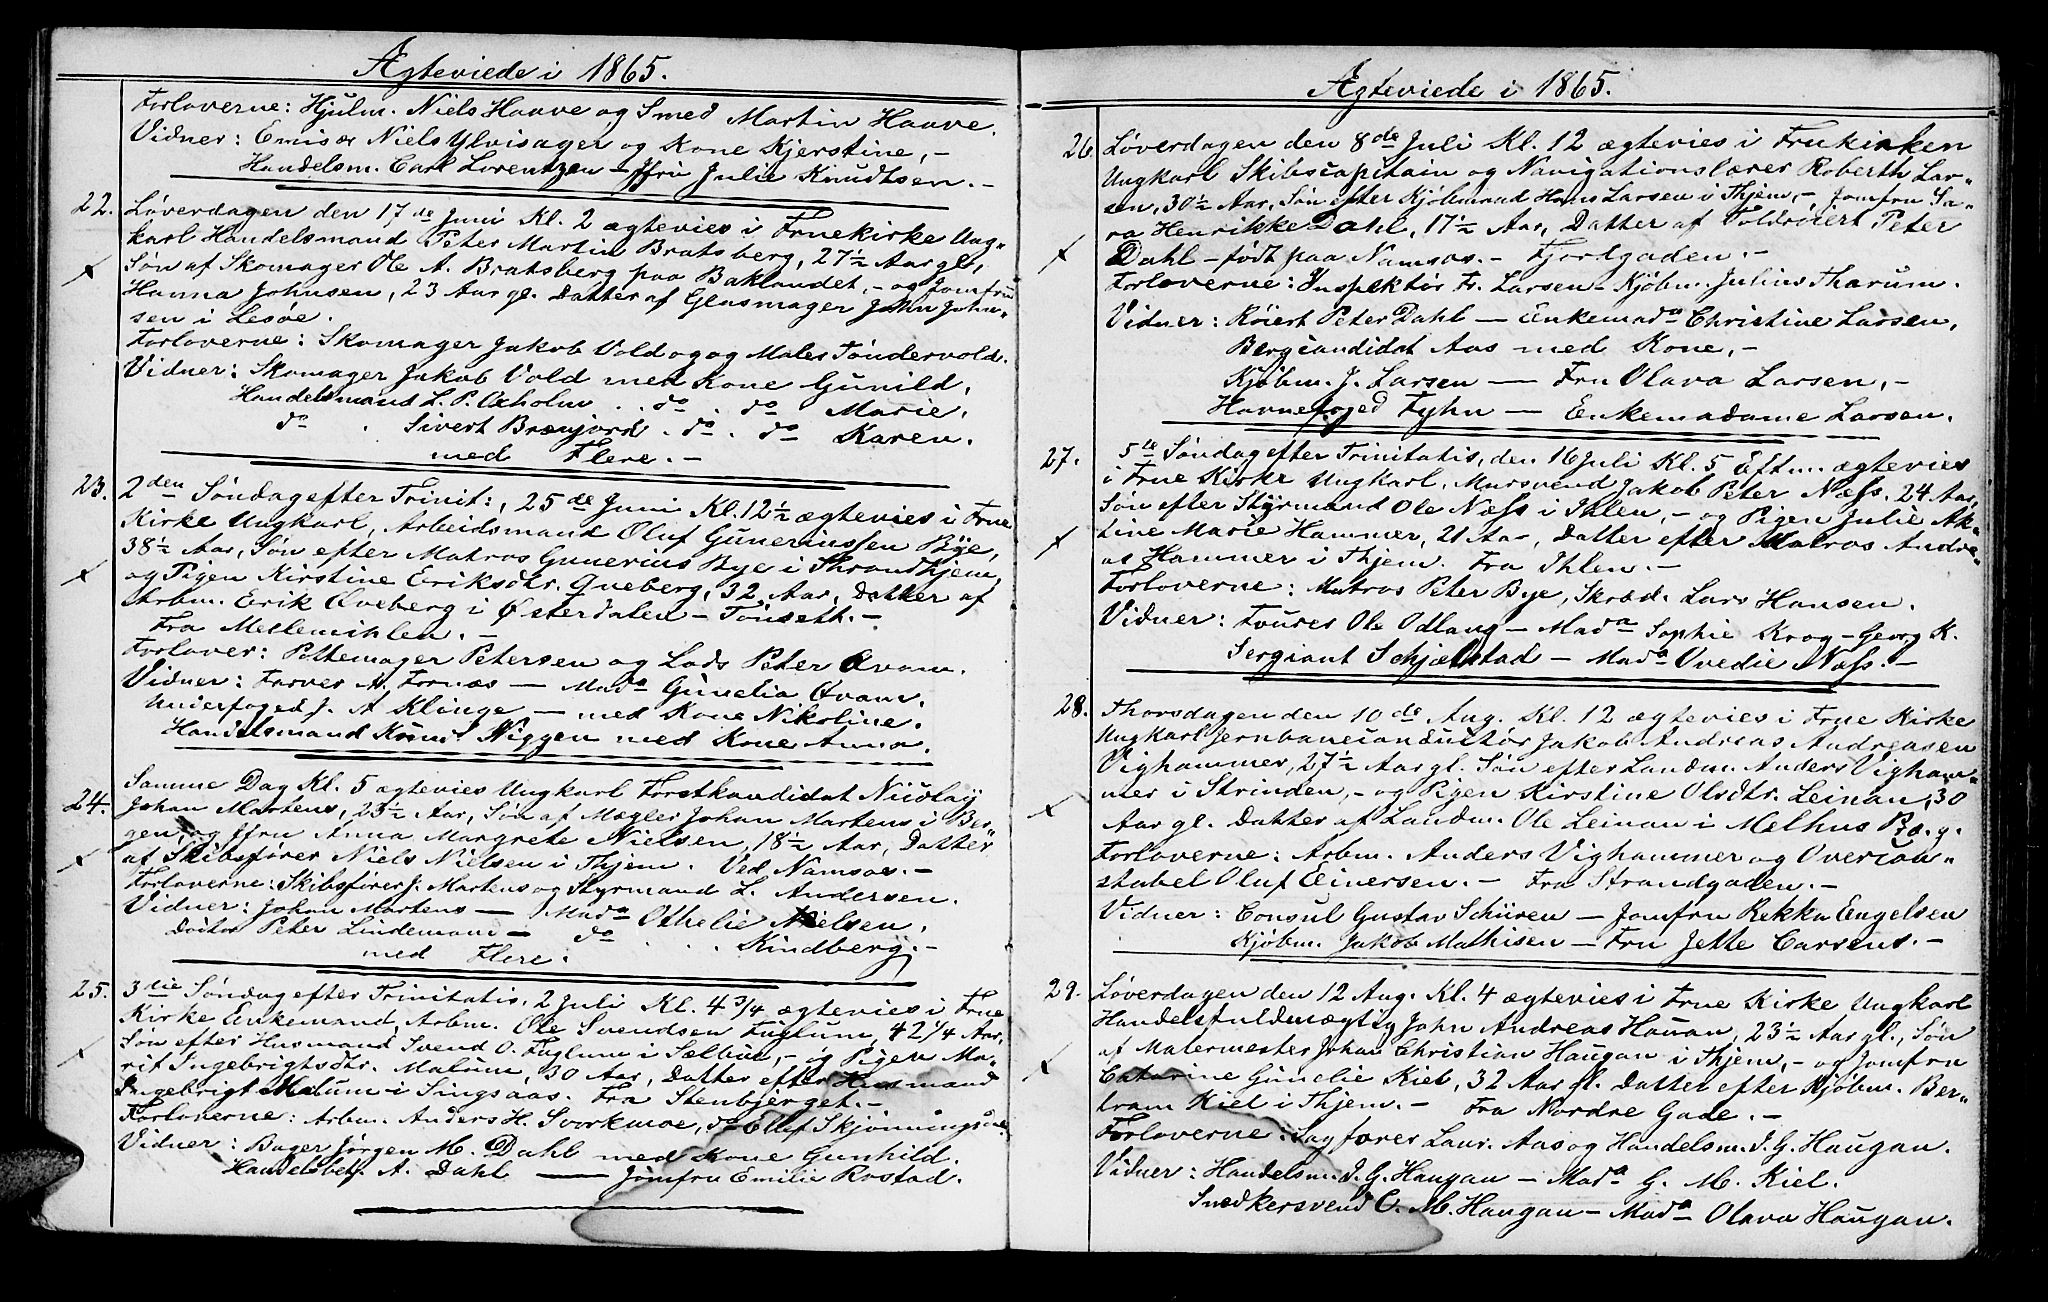 Ægteviede i 1865.
Forloverne: Hjulm. Niels Haave og Smed Martin Haave.
Vidner: Emisær Niels Ylvisager og Kone Kjerstine, -
Handelsm. Carl Lorentzen - Jfru Julie Knudtsen. -
22. Løverdagen den 17de Juni Kl. 2 ægtevies i Fruekirke Ung-
karl Handelsmand Peter Martin Bratsberg, 27½ Aar gl.,
Søn af Skomager Ole A. Bratsberg paa Baklandet, - og Jomfru
Hanna Johnsen, 23 Aar gl. Datter af Glasmager John John-
sen i Lesøe.
Forloverne: Skomager Jakob Vold og og Males Tøndervold.
Vidner: Skomager Jakob Vold med Kone Gunild,
Handelsmand L. P. Oxholm . do . do Marie,
do . Sivert Brænjord . do . do Karen.
med Flere. -
23. 2den Søndag efter Trinit:, 25de Juni Kl. 12½ ægtevies i Frue
Kirke Ungkarl, Arbeidsmand Oluf Guneriussen Bye,
38½ Aar, Søn efter Matros Gunerius Bye i Throndhjem,
og Pigen Kirstine Eriksdtr. Qveberg, 32 Aar, Datter af
Arbm. Erik Qveberg i Østerdalen - Tønseth. -
Fra Mellemihlen. -
Forlover: Pottemager Petersen og Lods Peter Qvam.
Vidner: Farver M. Fornæs - Mada Gunelia Qvam.
Underfoged J. A Klinge - med Kone Nikoline.
Handelsmand Knud Niggen med Kone Anna.
Samme Dag Kl. 5 ægtevies Ungkarl Forstkandidat Nicolay
24. Johan Martens, 25½ Aar, Søn af Mægler Johan Martens i Ber-
gen, og Jfru Anna Margrete Nielsen, 18½ Aar, Datter
af Skibsfører Niels Nielsen i Thjem. Ved Namsos. -
Forloverne: Skibsfører J. Martens og Styrmand L. Andersen.
Vidner: Johan Martens - Mada Othelie Nielsen,
Doctor Peter Lindemann - do . . Kindberg. -
med Flere.
25. 3die Søndag efter Trinitatis, 2 Juli Kl. 4¾ ægtevies i Frue
Kirke Enkemand, Arbm. Ole Svendsen Fuglum, 42¼ Aar,
Søn efter Husmand Svend O. Fuglum i Sælbue, - og Pigen Ma-
rit Ingebrigtsdtr. Malum, 30 Aar, Datter efter Husmand
Ingebrigt Malum i Singsaas. Fra Stenbjerget. -
Forloverne: Arbm. Anders H. Svorkmoe, do Oluf Skjønningsøe.
Vidner: Bager Jørgen M. Dahl med Kone Gunhild.
Handelsbetj. A. Dahl - Jomfru Emilie Rostad.
Ægteviede i 1865.
26. Løverdagen den 8de Juli Kl. 12 ægtevies i Fruekirken
Ungkarl Skibscapitain og Navigationslærer Roberth Lar-
sen, 30½ Aar, Søn efter Kjøbmand Hans Larsen i Thjem, - Jomfru Sa-
ra Henrikke Dahl, 17½ Aar, Datter af Toldrøiert Peter
Dahl - født paa Namsos. - Fjordgaden. -
Forloverne: Inspektør Fr. Larsen - Kjøbm. Julius Tharum.
Vidner: Røiert Peter Dahl - Enkemada Christine Larsen,
Bergcandidat Aas med Kone, -
Kjøbm. J. Larsen - Fru Olava Larsen, -
Havnefoged Fyhn - Enkemadame Larsen.
27. 5te Søndag efter Trinitatis, den 16 Juli Kl. 5 Eftm. ægtevies
i Frue Kirke Ungkarl, Mursvend Jakob Peter Næss, 24 Aar,
Søn efter Styrmand Ole Næss i Ihlen, - og Pigen Julie Ak-
tine Marie Hammer, 21 Aar, Datter efter Matros Andre-
as Hammer i Thjem. Fra Ihlen. -
Forloverne: Matros Peter Bye, Skræd. Lars Hansen.
Vidner: Foures Ole Odlaug - Mada Sophie Krog - Georg K.
Sergiant Schjælstad - Mada Ovedie Næss. -
28. Thorsdagen den 10de Aug. Kl. 12 ægtevies i Frue Kirke
Ungkarl Jernbaneconductør Jakob Andreas Andreasen
Vighammer, 27½ Aar gl. Søn efter Landm. Anders Vigham-
mer i Strinden, - og Pigen Kirstine Olsdtr. Leinan, 30
Aar gl. Datter af Landm. Ole Leinan i Melhus Præg.
Forloverne: Arbm. Anders Vighammer og Overcon-
stabel Oluf Einersen. - Fra Strandgaden. -
Vidner: Consul Gustav Schüren - Jomfru Rekka Engelsen
Kjøbm. Jakob Mathisen - Fru Jette Carsens. -
29. Løverdagen den 12 Aug. Kl. 4 ægtevies i Frue Kirke Ungkarl
Handelsfuldmægtig John Andreas Hauan, 23½ Aar gl., Søn
af Malermester Johan Christian Haugan i Thjem, - og Jomfru
Catarine Gunelie Kiel, 32 Aar gl. Datter efter Kjøbm. Ber-
tram Kiel i Thjem. - Fra Nordre Gade. -
Forloverne: Sagfører Laur. Aas og Handelsm. J. G. Haugan.
Vidner: Handelsm. J. G. Haugan - Mada G. M. Kiel.
Snedkersvend C. M. Haugan - Mada Olava Haugan.